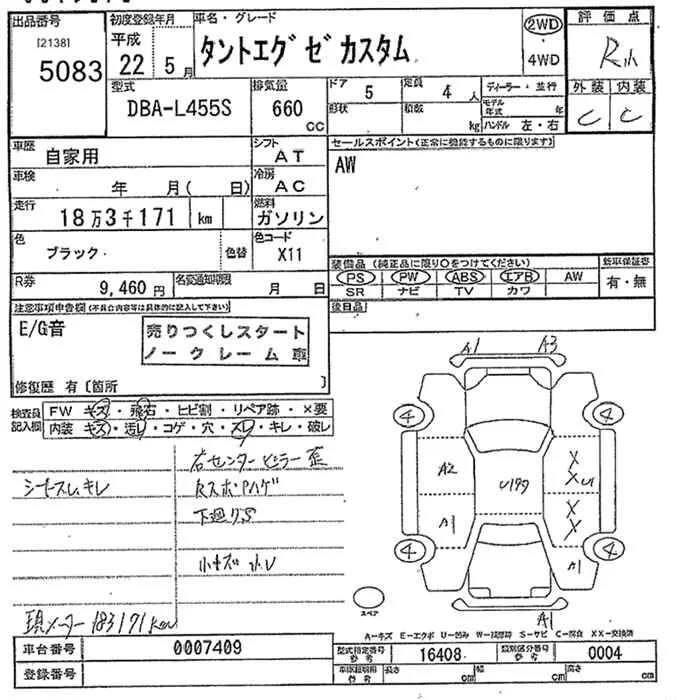 出品番号 初度登録年月 車名・グレード 2WD 評価点
[2138] 平成 タントエグゼカスタム
5083 22 5月 4WD
型式 排気量 ドア 5 定員 4人 ディーラー・並行 外装 内装
DBA-L455S 660 CC 形状 積数 kg モデル年式 年 ハンドル 左・右 C C
車歴 自家用 シフト AT セールスポイント(正常に機能するものに限ります)
車検 年 月( 日) 冷房 AC AW
走行 18万3千171 km 燃料 ガソリン
色 ブラック 色替 色コード X11
装備品(純正品に限り○をつけてください) 新車保証書
R券 9,460円 名変通知期限 月 日 PS PW ABS エアB AW 有・無
SR ナビ TV カワ
注意事項申告欄(不具合内容等は具体的に記入して下さい) 後日品
E/G音 売りつくしスタート
ノークレーム車
修復歴 有〔箇所 〕
A1 A3
検査員記入欄 FW キズ・飛石・ヒビ割・リペア跡・×要
内装 キズ・汚レ・コゲ・穴・スレ・キレ・破レ
4 4
右センターピラー歪
A2 X
XU
下廻りS
A1 X
X
4 4
A1
スペア
現メーター183171km
A1
A-キズ E-エクボ U-凹み W-補修跡 S-サビ C-腐食 XX-交換済
車台番号 0007409 型式指定番号 参考 16408 類別区分番号 参考 0004
登録番号 車庫証明用 参考 長さ cm 幅 cm 高さ cm